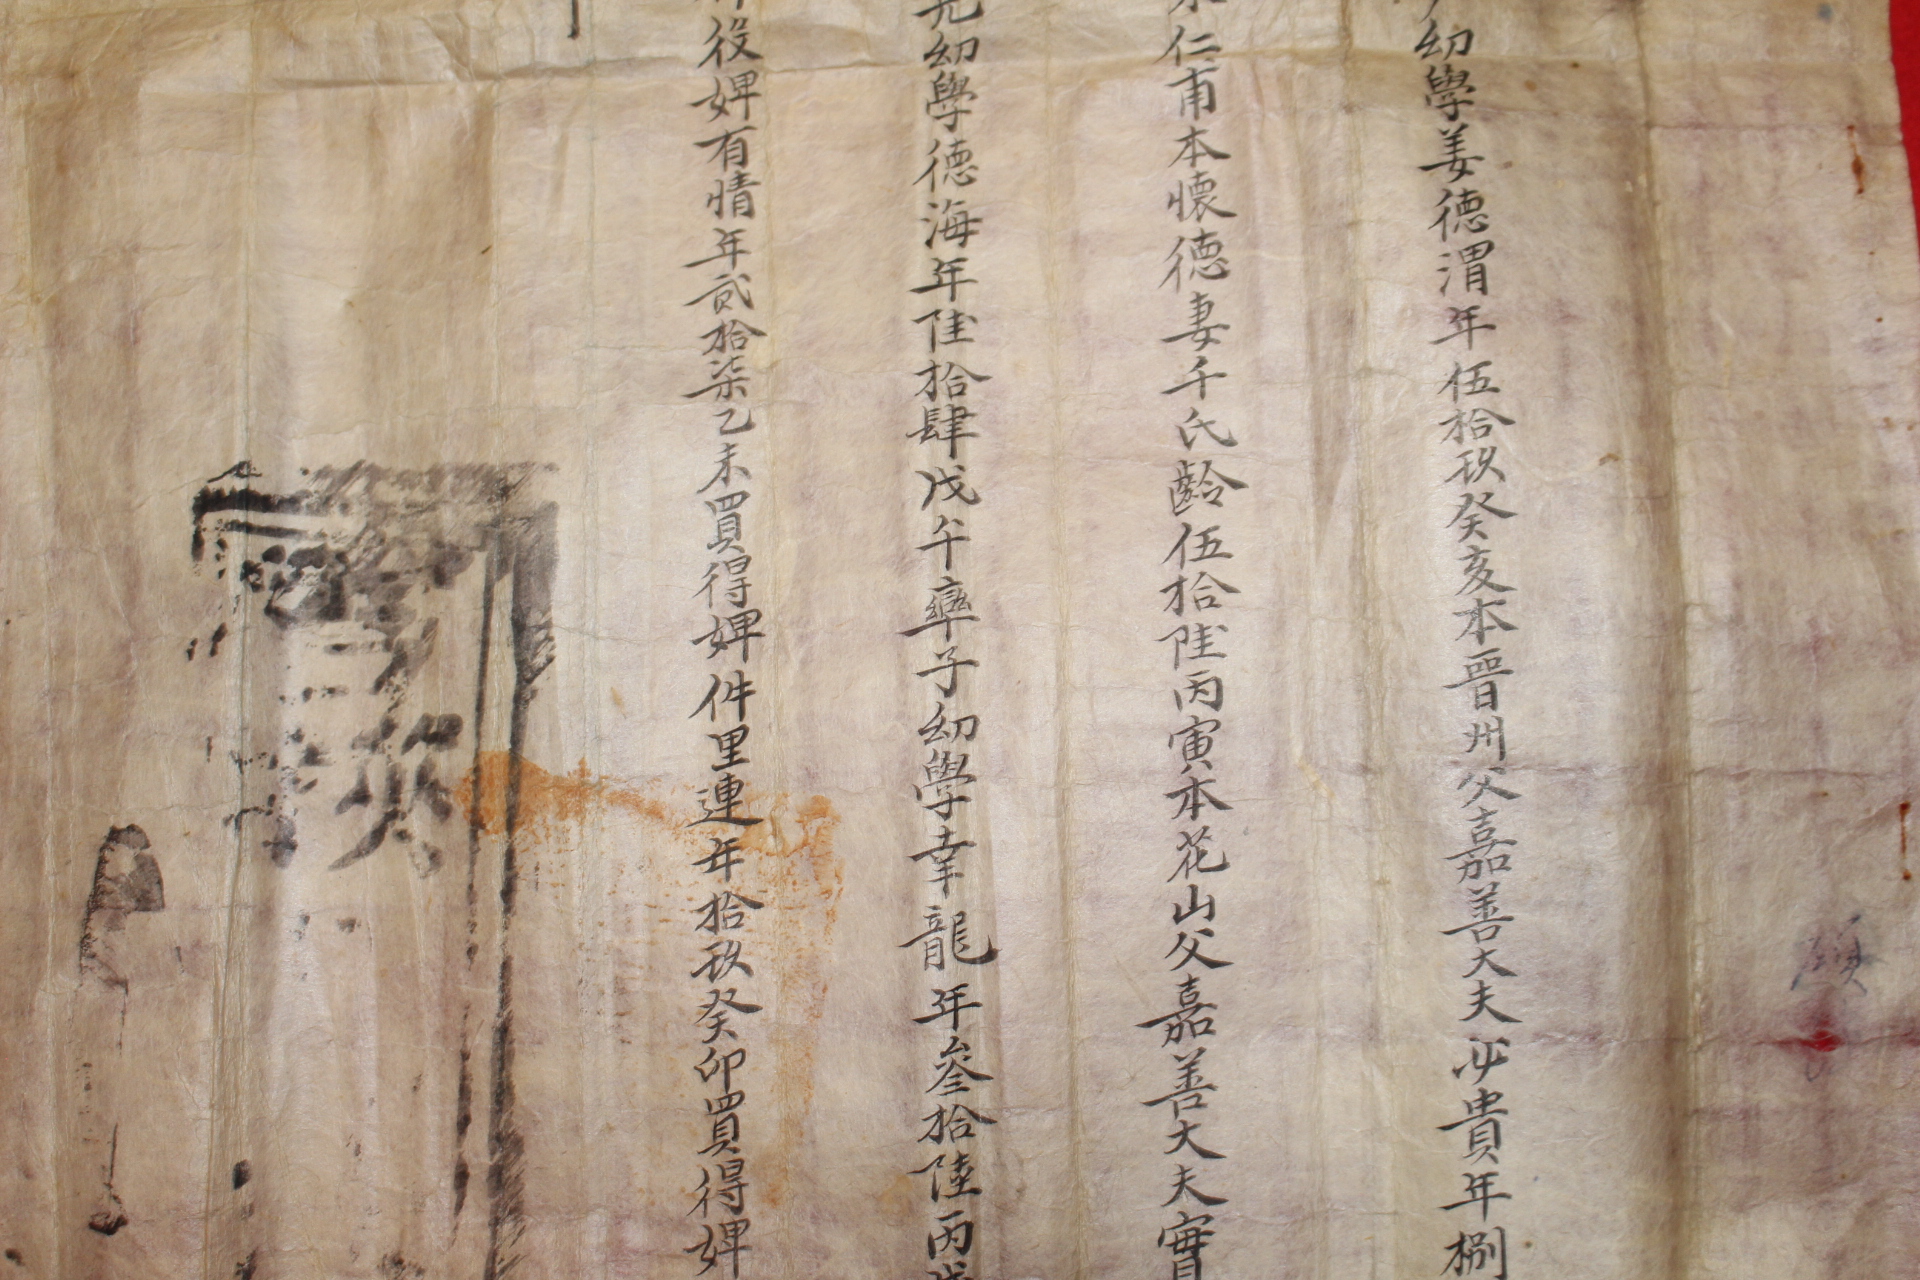 幼學姜德渭年伍拾玖癸亥本晋州父嘉善大夫必貴年捌
仁甫本懷德妻千氏齡伍拾陸丙寅本花山父嘉善大夫實
幼學德海年陸拾肆戊午率子幼學幸龍年叄拾陸丙戌
役婢有情年貳拾柒乙未買得婢件里連年拾玖癸卯買得婢